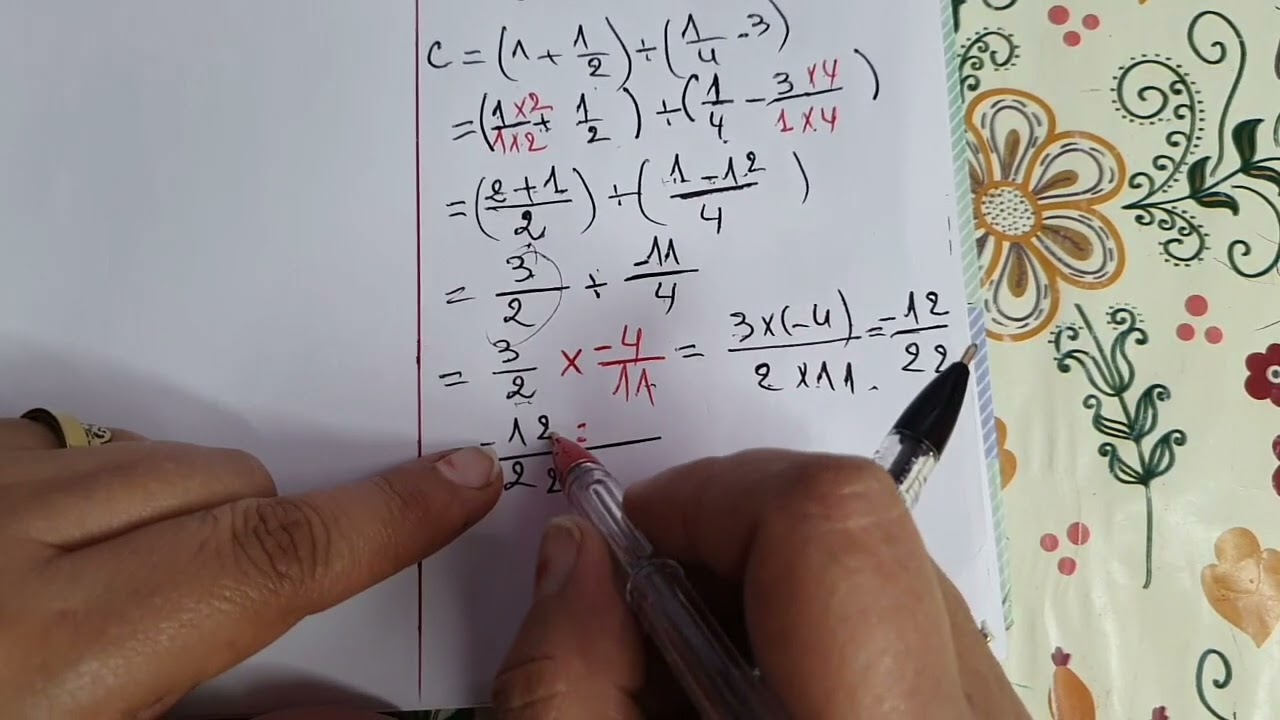 C = (1 + 1/2) ÷ (1/4 - 3)
= (1×2/1×2 + 1/2) ÷ (1/4 - 3×4/1×4)
= (2+1/2) ÷ (1-12/4)
= 3/2 ÷ -11/4
= 3/2 × -4/11 = 3×(-4)/2×11 = -12/22
-12:/22